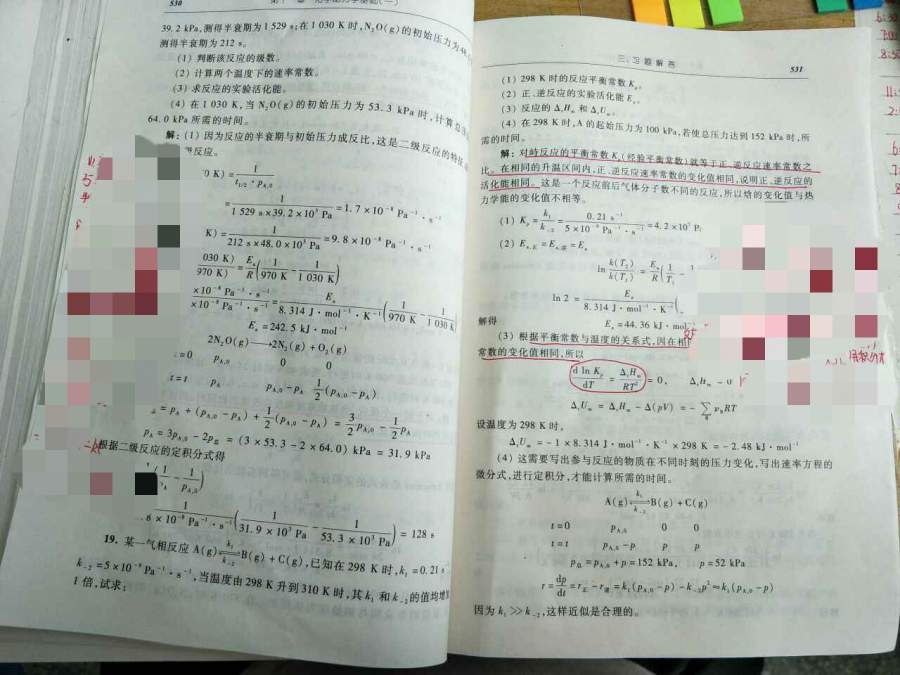 530
39.2 kPa,测得半衰期为1 529 s;在1 030 K时,N₂O(g)的初始压力为48
测得半衰期为212 s。
(1) 判断该反应的级数。
(2) 计算两个温度下的速率常数。
(3) 求反应的实验活化能。
(4) 在1 030 K,当N₂O(g)的初始压力为53.3 kPa时,计算总
64.0 kPa所需的时间。
解:(1) 因为反应的半衰期与初始压力成反比,这是二级反应的特征
反应。
0 K) = 1/(t₁/₂ · p_A,0)
= 1/(1 529 s×39.2×10³ Pa) = 1.7×10⁻⁸ Pa⁻¹·s⁻¹
K) = 1/(212 s×48.0×10³ Pa) = 9.8×10⁻⁸ Pa⁻¹·s⁻¹
030 K)/970 K) = Eₐ/R (1/970 K − 1/1 030 K)
×10⁻⁸ Pa⁻¹·s⁻¹/×10⁻⁸ Pa⁻¹·s⁻¹ = Eₐ/(8.314 J·mol⁻¹·K⁻¹) (1/970 K − 1/1 030 K)
Eₐ = 242.5 kJ·mol⁻¹
2N₂O(g)⟶2N₂(g)+O₂(g)
=0 p_A,0 0 0
t=t p_A p_A,0−p_A ½(p_A,0−p_A)
= p_A+(p_A,0−p_A)+½(p_A,0−p_A) = 3/2 p_A,0 − 1/2 p_A
p_A = 3p_A,0−2p_总 = (3×53.3−2×64.0) kPa = 31.9 kPa
根据二级反应的定积分式得
(1/p_A − 1/p_A,0)
1/(8×10⁻⁸ Pa⁻¹·s⁻¹) (1/(31.9×10³ Pa) − 1/(53.3×10³ Pa)) = 128 s
19. 某一气相反应 A(g) ⇌ (k₁/k₋₂) B(g)+C(g),已知在298 K时,k₁=0.21 s⁻
k₋₂=5×10⁻⁹ Pa⁻¹·s⁻¹,当温度由298 K升到310 K时,其k₁和k₋₂的值均增
1倍,试求:
三、习题解答 531
(1) 298 K时的反应平衡常数Kₚ。
(2) 正、逆反应的实验活化能Eₐ。
(3) 反应的ΔᵣHₘ和ΔᵣUₘ。
(4) 在298 K时,A的起始压力为100 kPa,若使总压力达到152 kPa时,所
需的时间。
解:对峙反应的平衡常数Kₚ(经验平衡常数)就等于正、逆反应速率常数之
比。在相同的升温区间内,正、逆反应速率常数的变化值相同,说明正、逆反应的
活化能相同。这是一个反应前后气体分子数不同的反应,所以焓的变化值与热
力学能的变化值不相等。
(1) Kₚ = k₁/k₋₂ = 0.21 s⁻¹/(5×10⁻⁹ Pa⁻¹·s⁻¹) = 4.2×10⁷ P
(2) Eₐ,正 = Eₐ,逆 = Eₐ
ln k(T₂)/k(T₁) = Eₐ/R (1/T₁ −
ln 2 = Eₐ/(8.314 J·mol⁻¹·K⁻¹) (
解得
Eₐ = 44.36 kJ·mol
(3) 根据平衡常数与温度的关系式,因在相
常数的变化值相同,所以
d ln Kₚ/dT = ΔᵣHₘ/RT² = 0, ΔᵣHₘ = 0
ΔᵣUₘ = ΔᵣHₘ − Δ(pV) = − ∑ ν_B RT
设温度为298 K时。
ΔᵣUₘ = −1×8.314 J·mol⁻¹·K⁻¹×298 K = −2.48 kJ·mol⁻¹
(4) 这需要写出参与反应的物质在不同时刻的压力变化,写出速率方程的
微分式,进行定积分,才能计算所需的时间。
A(g) ⇌ (k₁/k₋₂) B(g)+C(g)
t=0 p_A,0 0 0
t=t p_A,0−p p p
p_总 = p_A,0+p = 152 kPa, p = 52 kPa
r = dp/dt = r_正−r_逆 = k₁(p_A,0−p)−k₋₂p² ≈ k₁(p_A,0−p)
因为k₁≫k₋₂,这样近似是合理的。